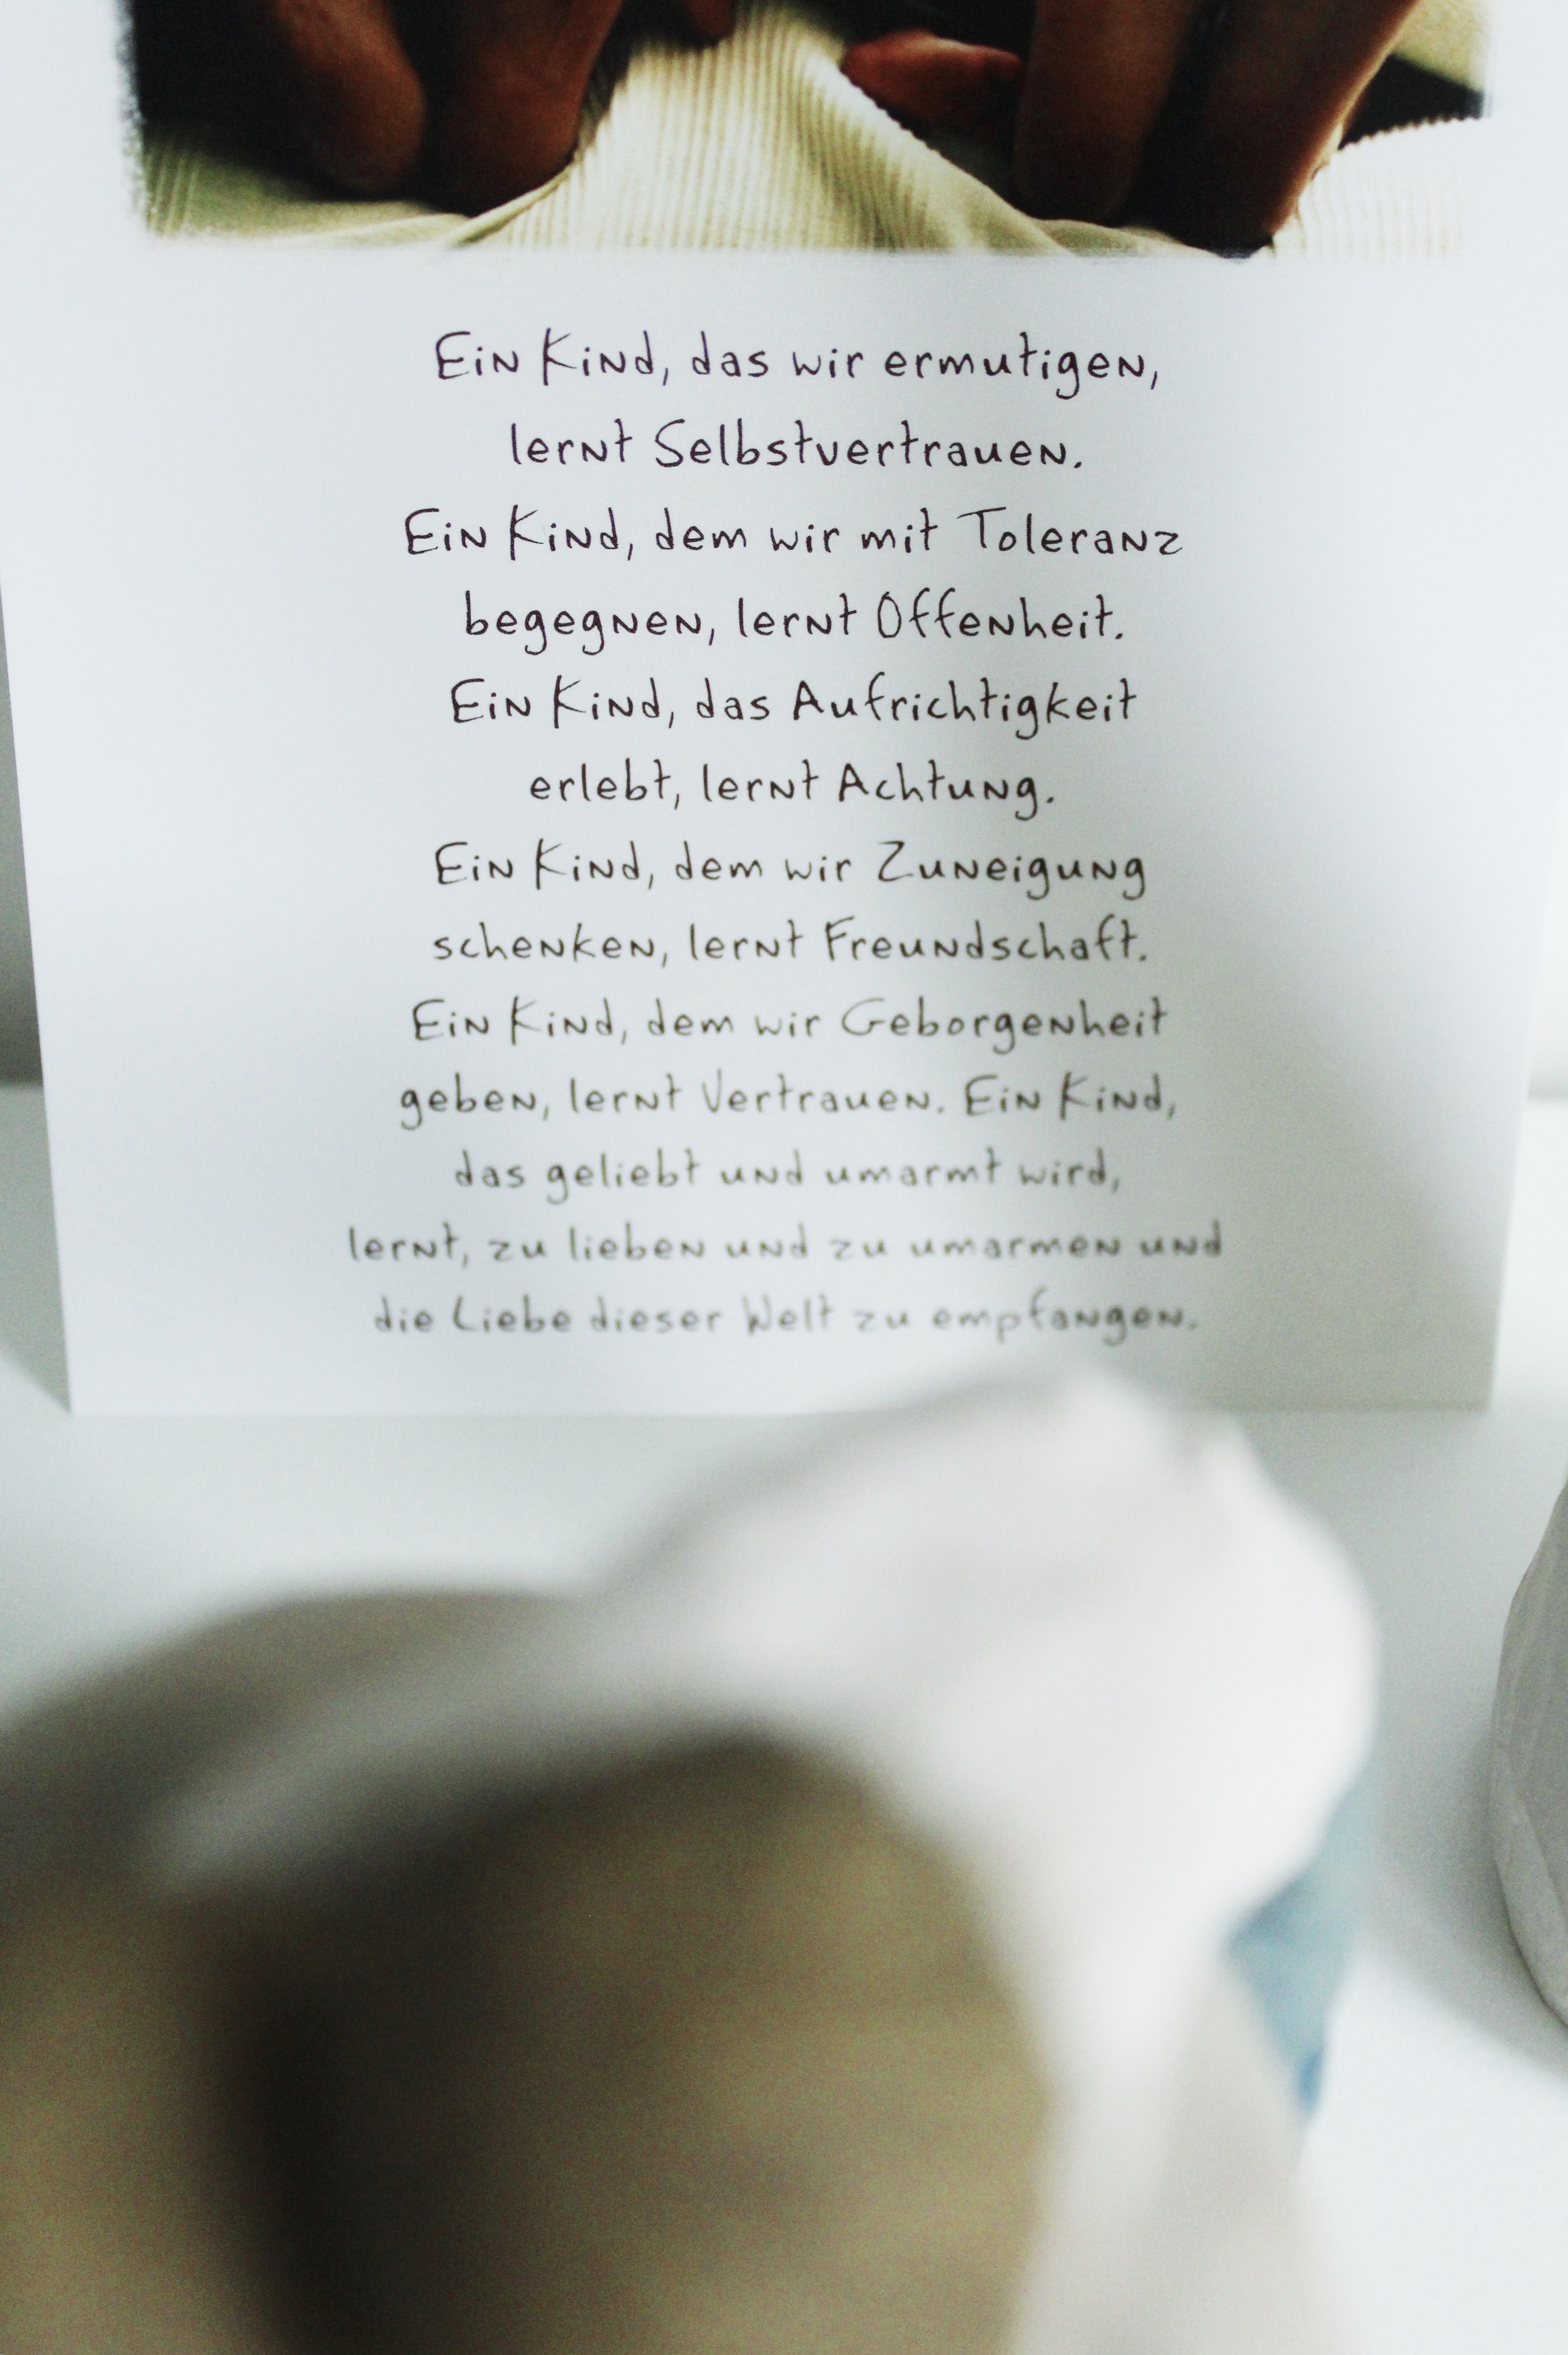 Ein Kind, das wir ermutigen,
lernt Selbstvertrauen.
Ein Kind, dem wir mit Toleranz
begegnen, lernt Offenheit.
Ein Kind, das Aufrichtigkeit
erlebt, lernt Achtung.
Ein Kind, dem wir Zuneigung
schenken, lernt Freundschaft.
Ein Kind, dem wir Geborgenheit
geben, lernt Vertrauen. Ein Kind,
das geliebt und umarmt wird,
lernt, zu lieben und zu umarmen und
die Liebe dieser Welt zu empfangen.